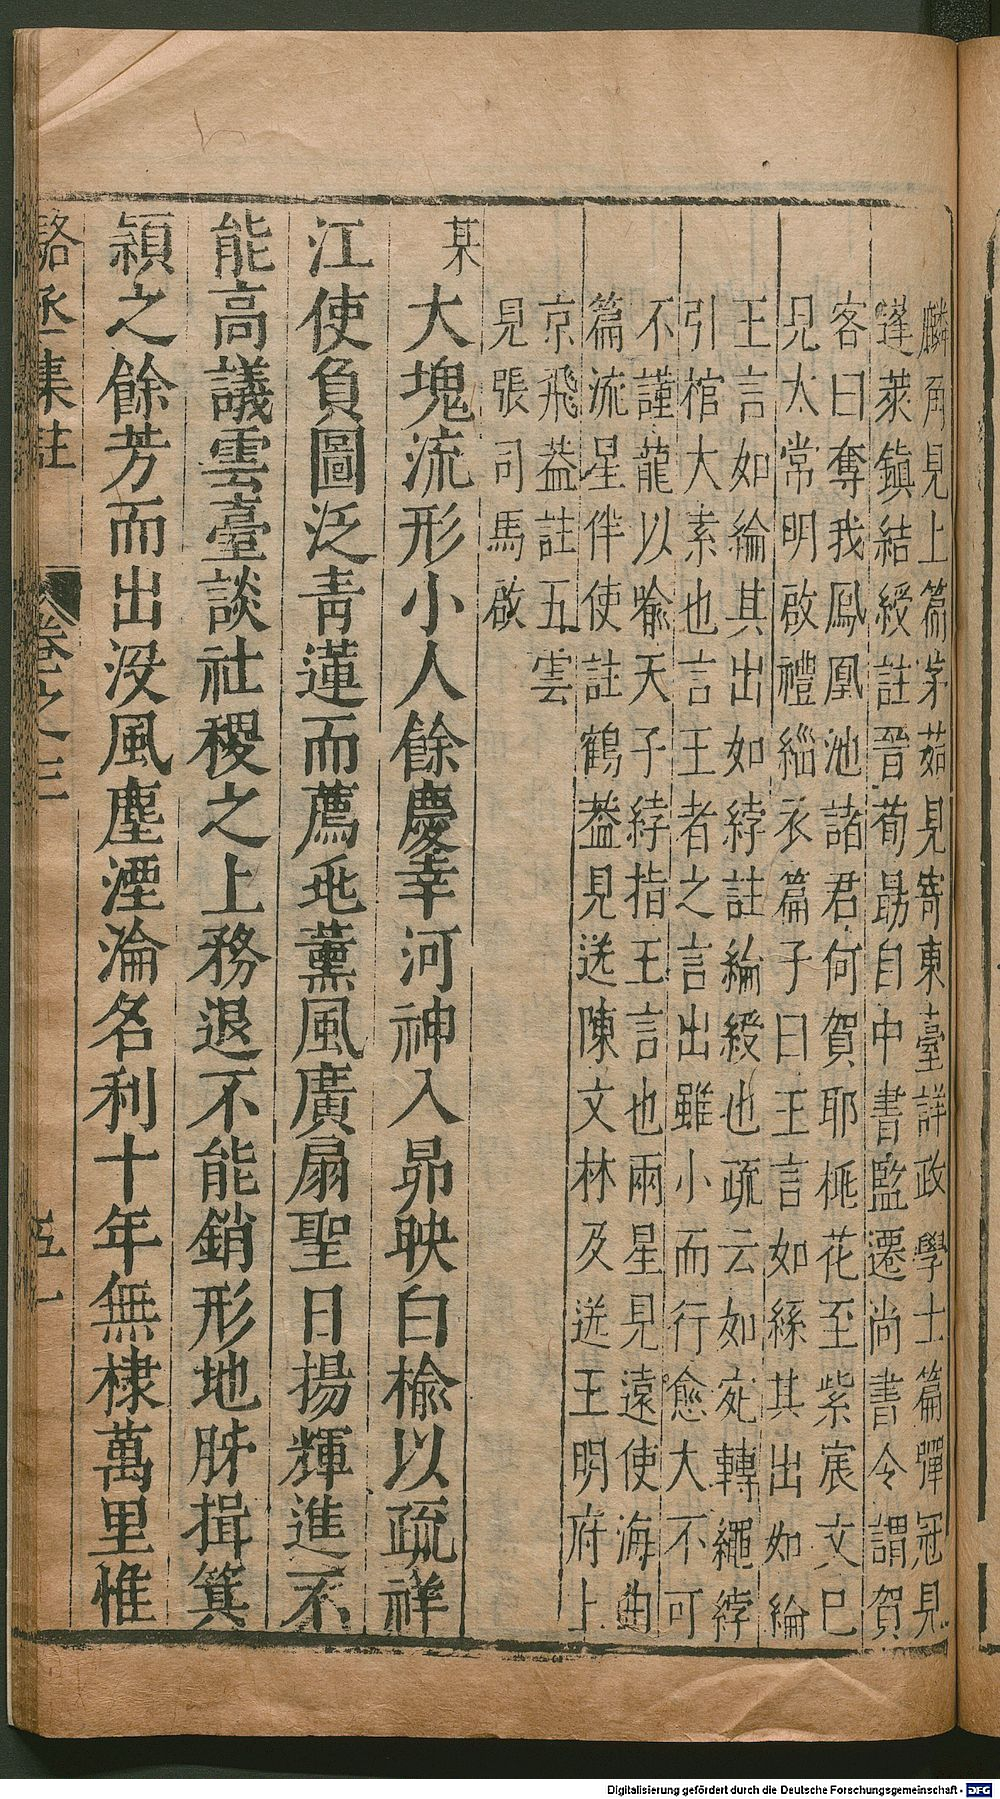 麟角見上篇茅茹見寄東臺詳政學士篇彈冠見
蓬萊鎮結綬註晉荀勗自中書監遷尚書令謂賀
客曰奪我鳳凰池諸君何賀耶桃花至紫宸文巳
見太常明啟禮緇衣篇子曰王言如絲其出如綸
王言如綸其出如綍註綸綬也疏云如宛轉繩綍
引棺大素也言王者之言出雖小而行愈大不可
不謹龍以喻天子綍指王言也兩星見遠使海曲
篇流星伴使註鶴蓋見送陳文林及送王明府上
京飛蓋註五雲
見張司馬啟
某
大塊流形小人餘慶幸河神入昴映白榆以疏祥
江使負圖泛青蓮而薦兆薰風廣扇聖日揚輝進不
能高議雲臺談社稷之上務退不能銷形地肺揖箕
潁之餘芳而出沒風塵湮淪名利十年無棣萬里惟
駱丞集註
卷之三
五一
Digitalisierung gefördert durch die Deutsche Forschungsgemeinschaft - DFG